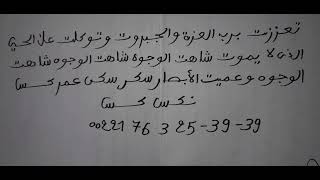 تعززت برب العزة والجبروت وتوكلت على الحي
الذي لا يموت شاهت الوجوه شاهت الوجوه شاهت
الوجوه وعميت الأبصار سكر سكر عمر عسا
نكس عسا
00221 76 3 25-39-39